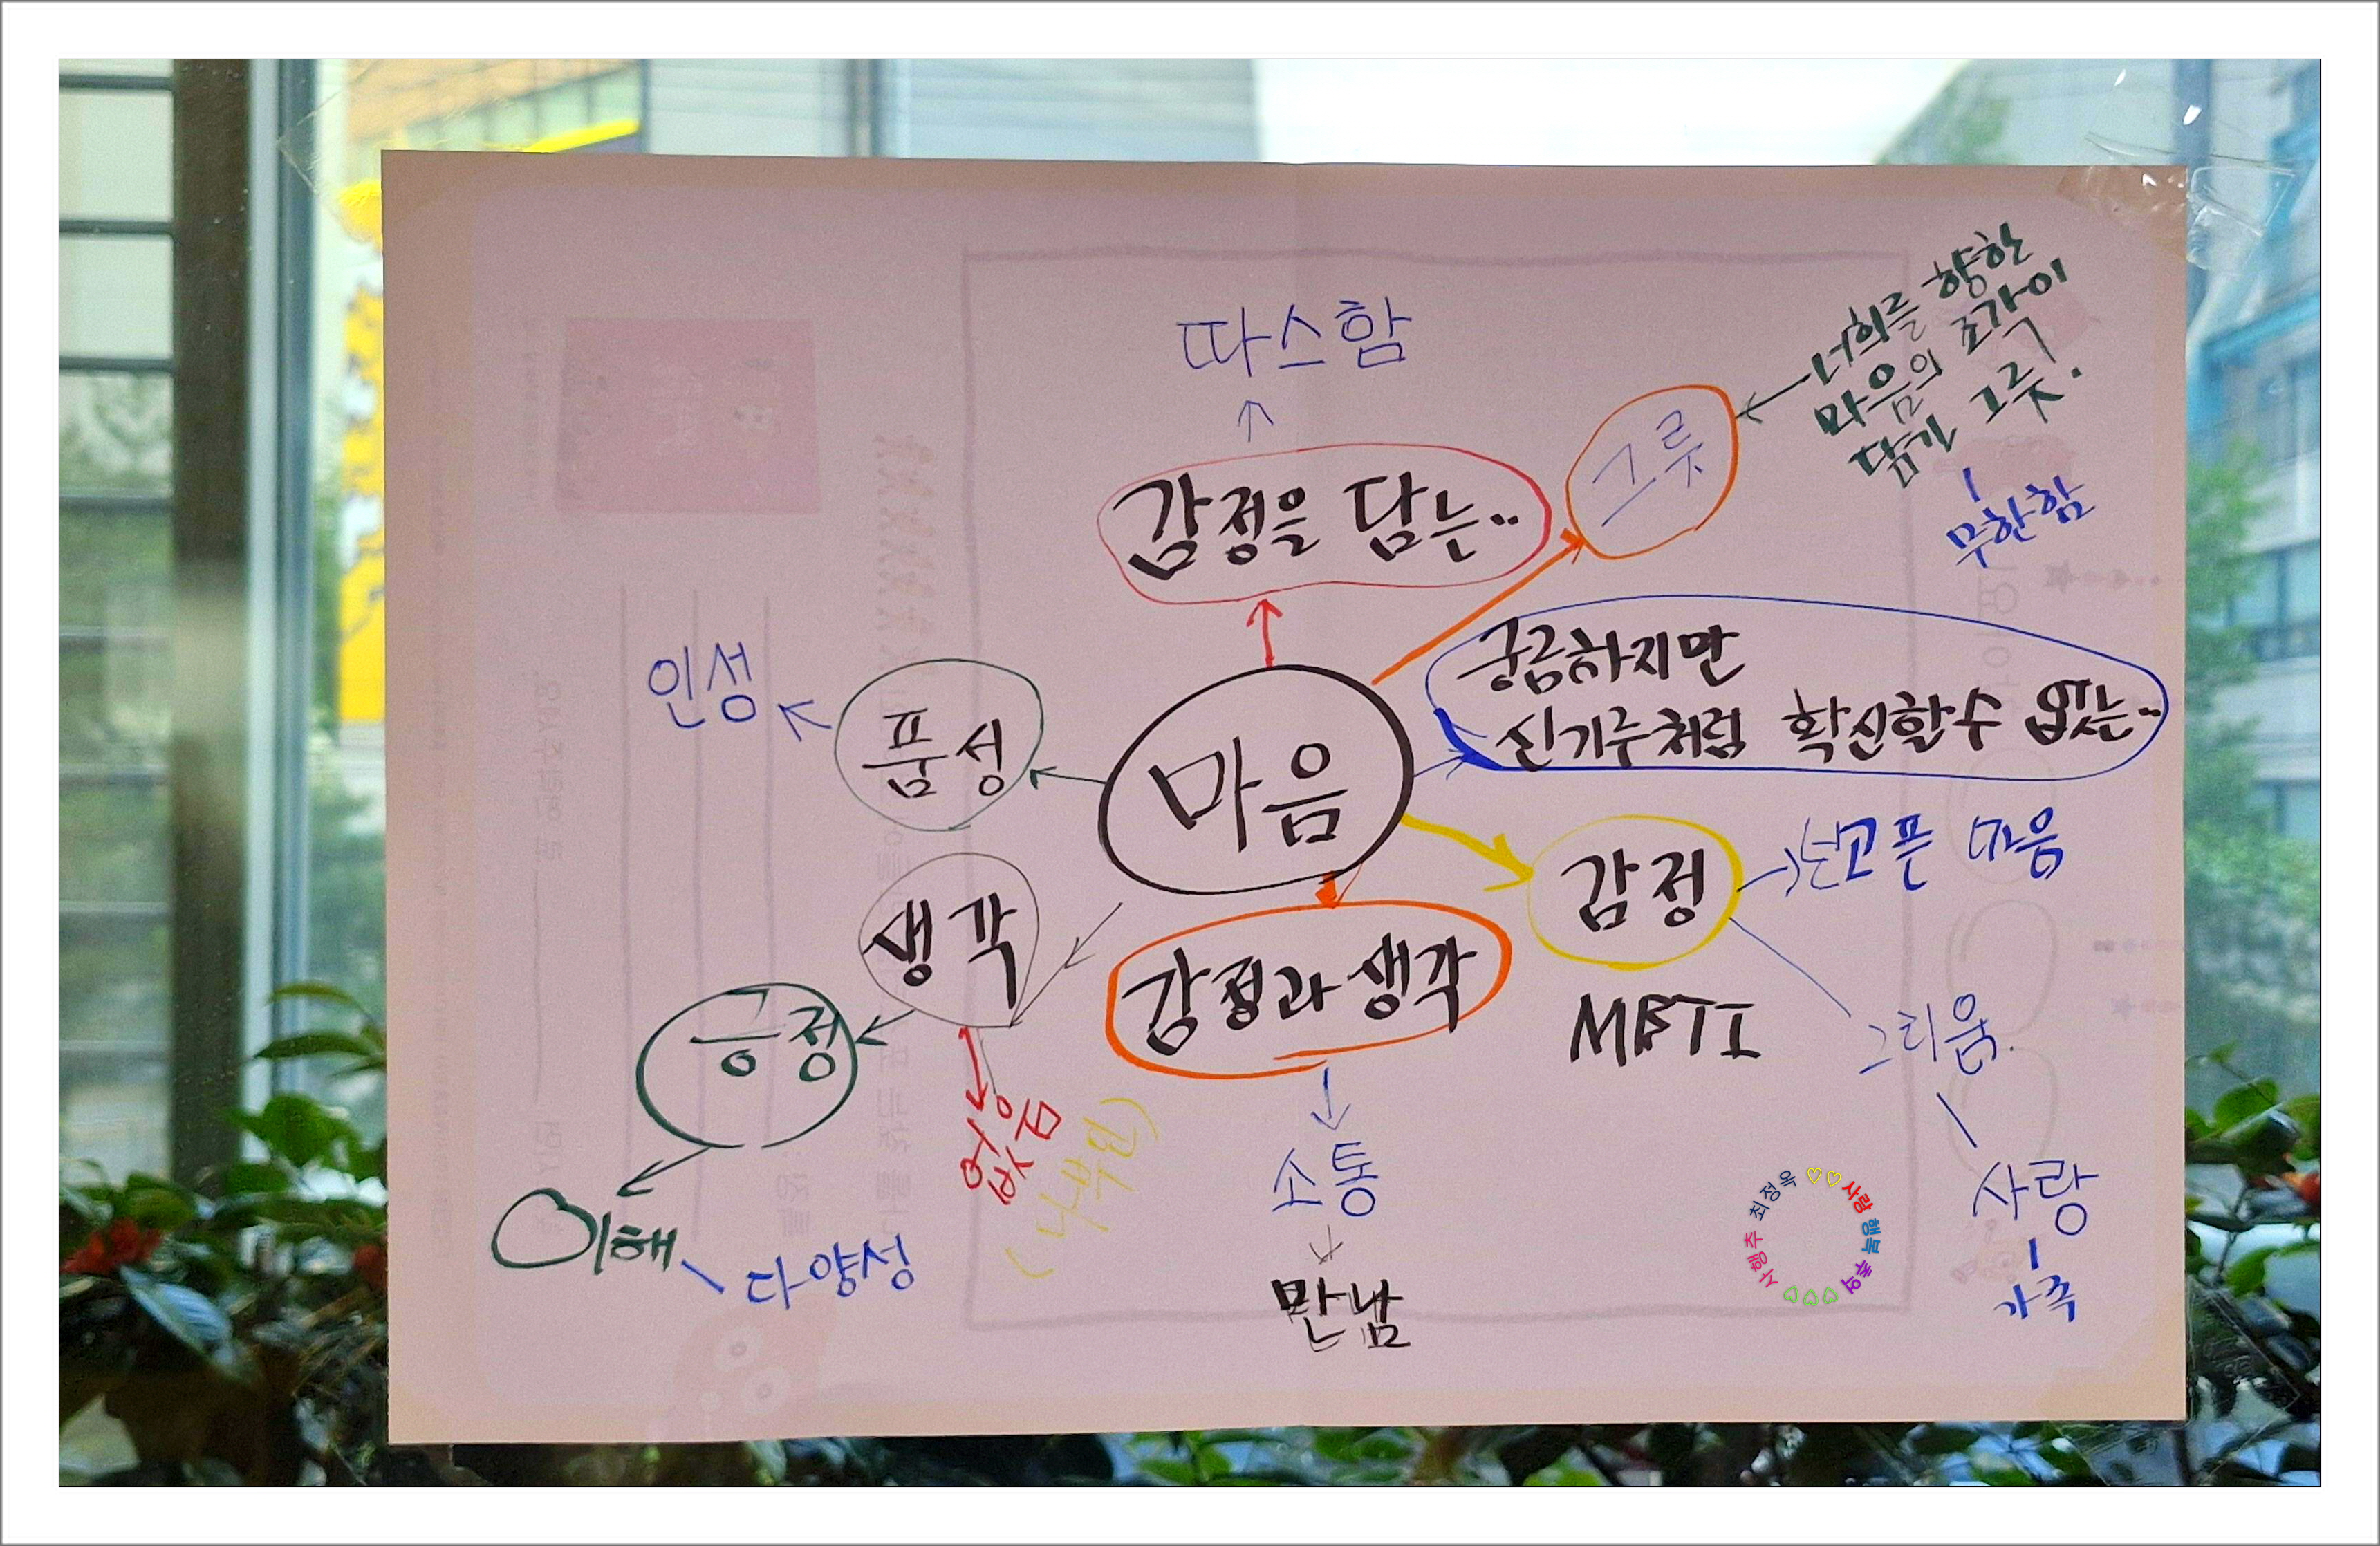 따스함
너희를 향한
마음의 조각이
담긴 그릇.
그릇
감정을 담는..
무한함
궁금하지만
신기루처럼 확신할수 없는..
인성
품성
마음
감정
마음
생각
감정과 생각
MBTI
긍정
그리움.
없음
소통
사랑
이해
다양성
만남
가족
사행추 최정옥 ♡♡ 사랑 행복 추억 ♡♡♡